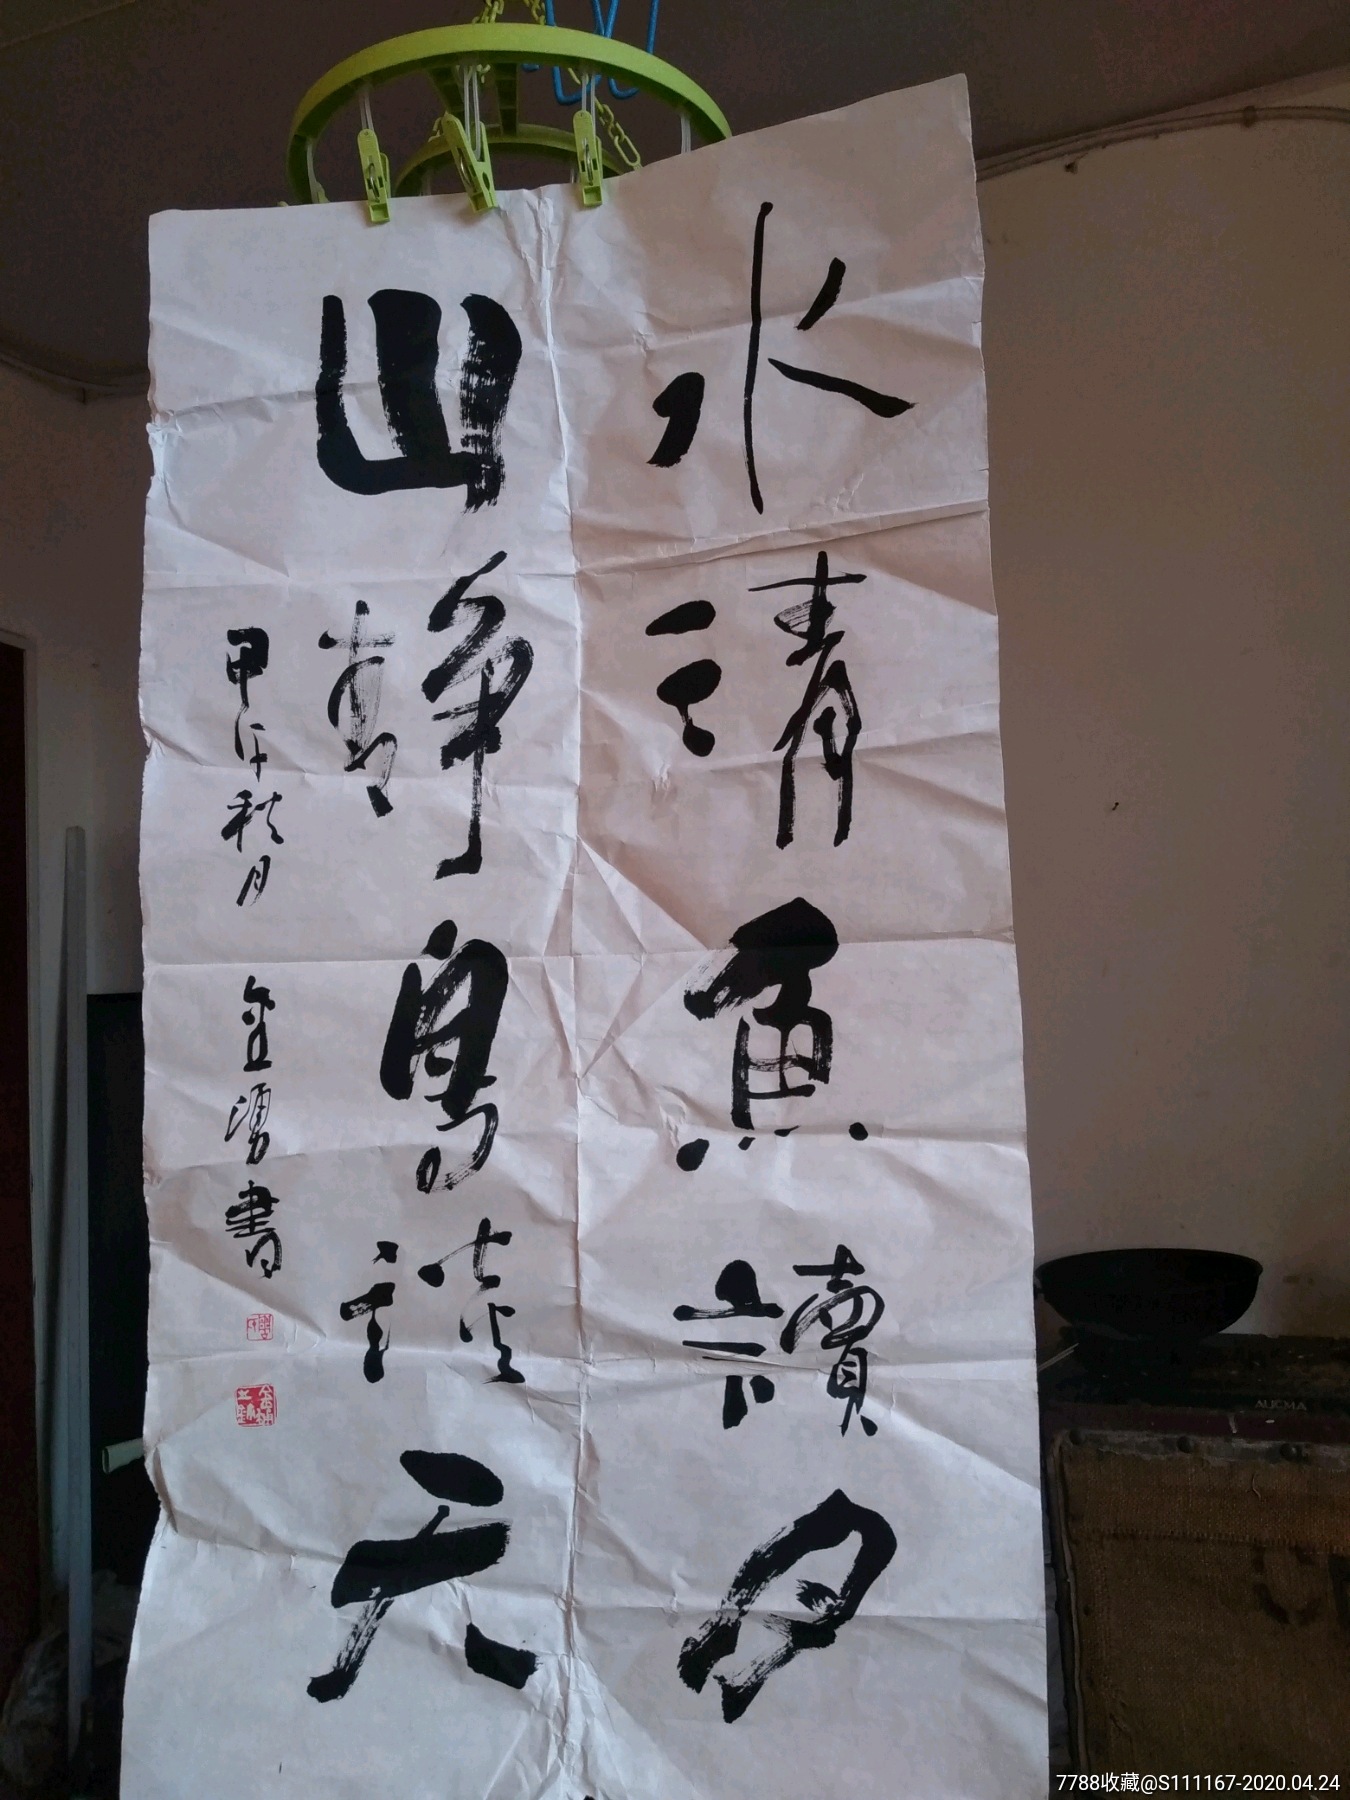 水清魚讀月
山靜鳥談天
甲午秋月 金湧書
AUCMA
7788收藏@S111167-2020.04.24